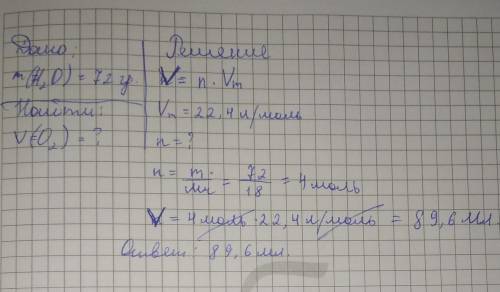 Дано:
m(H₂O) = 72 гр.
Найти:
V(O₂) = ?
Решение
V = n · Vm
Vm = 22,4 л/моль
n = ?
n = m/Mr = 72/18 = 4 моль
V = 4 моль · 22,4 л/моль = 89,6 мл.
Ответ: 89,6 мл.